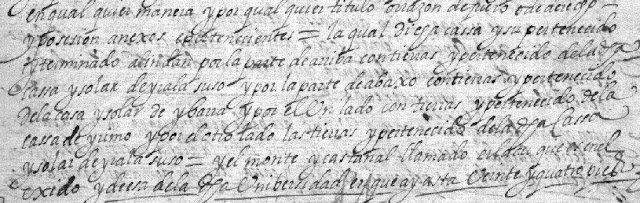 en qual quier manera y por qual quier titulo
y posesion anexos y pertenecientes = la qual dicha cassa y su pertenecido
y terminado alindan por la parte de arriba con tierras y pertenecido de la dha
cassa y solar de yrala suso y por la parte de abaxo con tierras y pertenecido
de la casa y solar de ybarra y por el Un lado con tierras y pertenecido de la
cassa de yumo y por el otro lado las tierras y pertenecido de la dha Cassa
y solar de yrala suso = y el monte y castañal llamado que es en el
exido y deesa de la dha Universidad en que ay asta Veinte y quatro pies